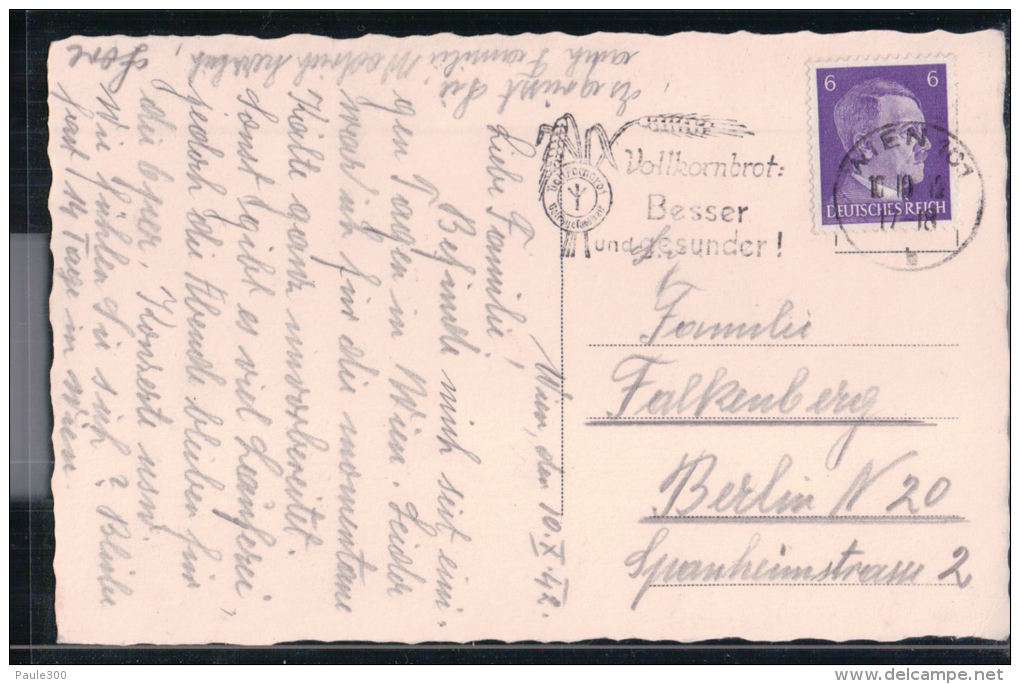 Wien, den 10.X.42.
Liebe Familie!
Befinde mich seit eini-
gen Tagen in Wien. Leider
war ich für die momentane
Kälte ganz unvorbereitet.
Sonst gibt es viel Lauferei,
jedoch die Abende bleiben für
die Oper, Konzerte usw.
Wie fühlen Sie sich? Bleibe
fast 14 Tage in Wien
Es grüsst Sie,
auch Familie herzlich,
Lore
6 6
DEUTSCHES REICH
WIEN 101
17-18
Vollkornbrot:
Besser
und gesunder!
Familie
Falkenberg
Berlin N 20
Spanheimstrasse 2
Paule300
www.delcampe.net